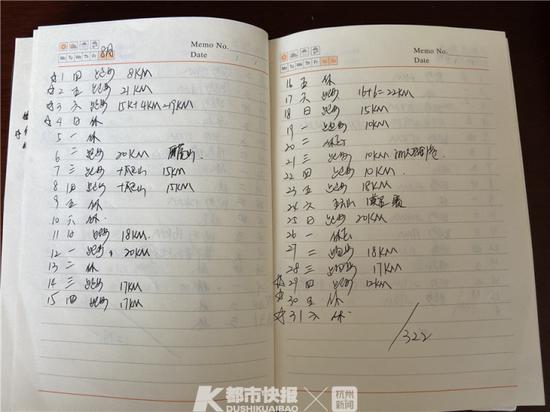 8月
Memo No.
Date
1 四 跑步 8KM
2 五 跑步 21KM
3 六 跑步 15K+4KM=19KM
4 日 休
5 一 休
6 二 跑步 20KM
7 三 跑步 15KM
8 四 15KM
9 五 休
10 六 休
11 日 跑步 18KM
12 一 跑步 20KM
13 二 休
14 三 跑步 17KM
15 四 跑步 17KM
Memo No.
Date
16 五 休
17 六 跑步 16+6=22KM
18 日 跑步 15KM
19 一 跑步 10KM
20 二
21 三 跑步 10KM
22 四 跑步 10KM
23 五 跑步 18KM
24 六
25 日 跑步 20KM
26 一
27 二 跑步 18KM
28 三 跑步 17KM
29 四 跑步 12KM
30 五 休
31 六 休
322
都市快报
DUSHIKUAIBAO
杭州
新闻